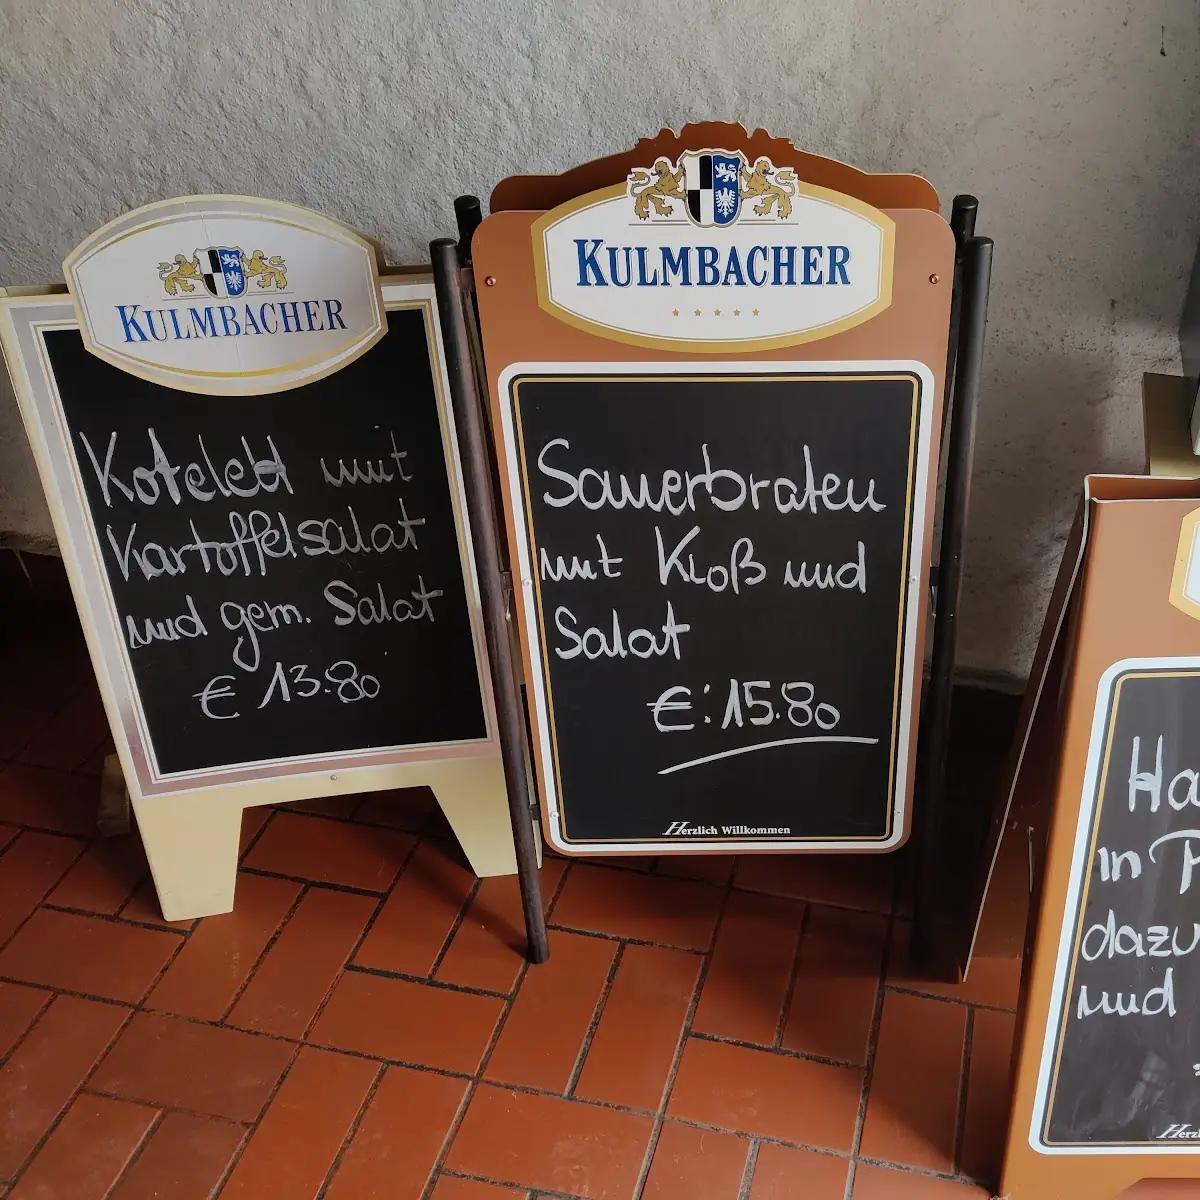 KULMBACHER
Kotelett mit
Kartoffelsalat
und gem. Salat
€ 13.80
KULMBACHER
Sauerbraten
mit Kloß und
Salat
€: 15.80
Herzlich Willkommen
Ha
in
dazu
und